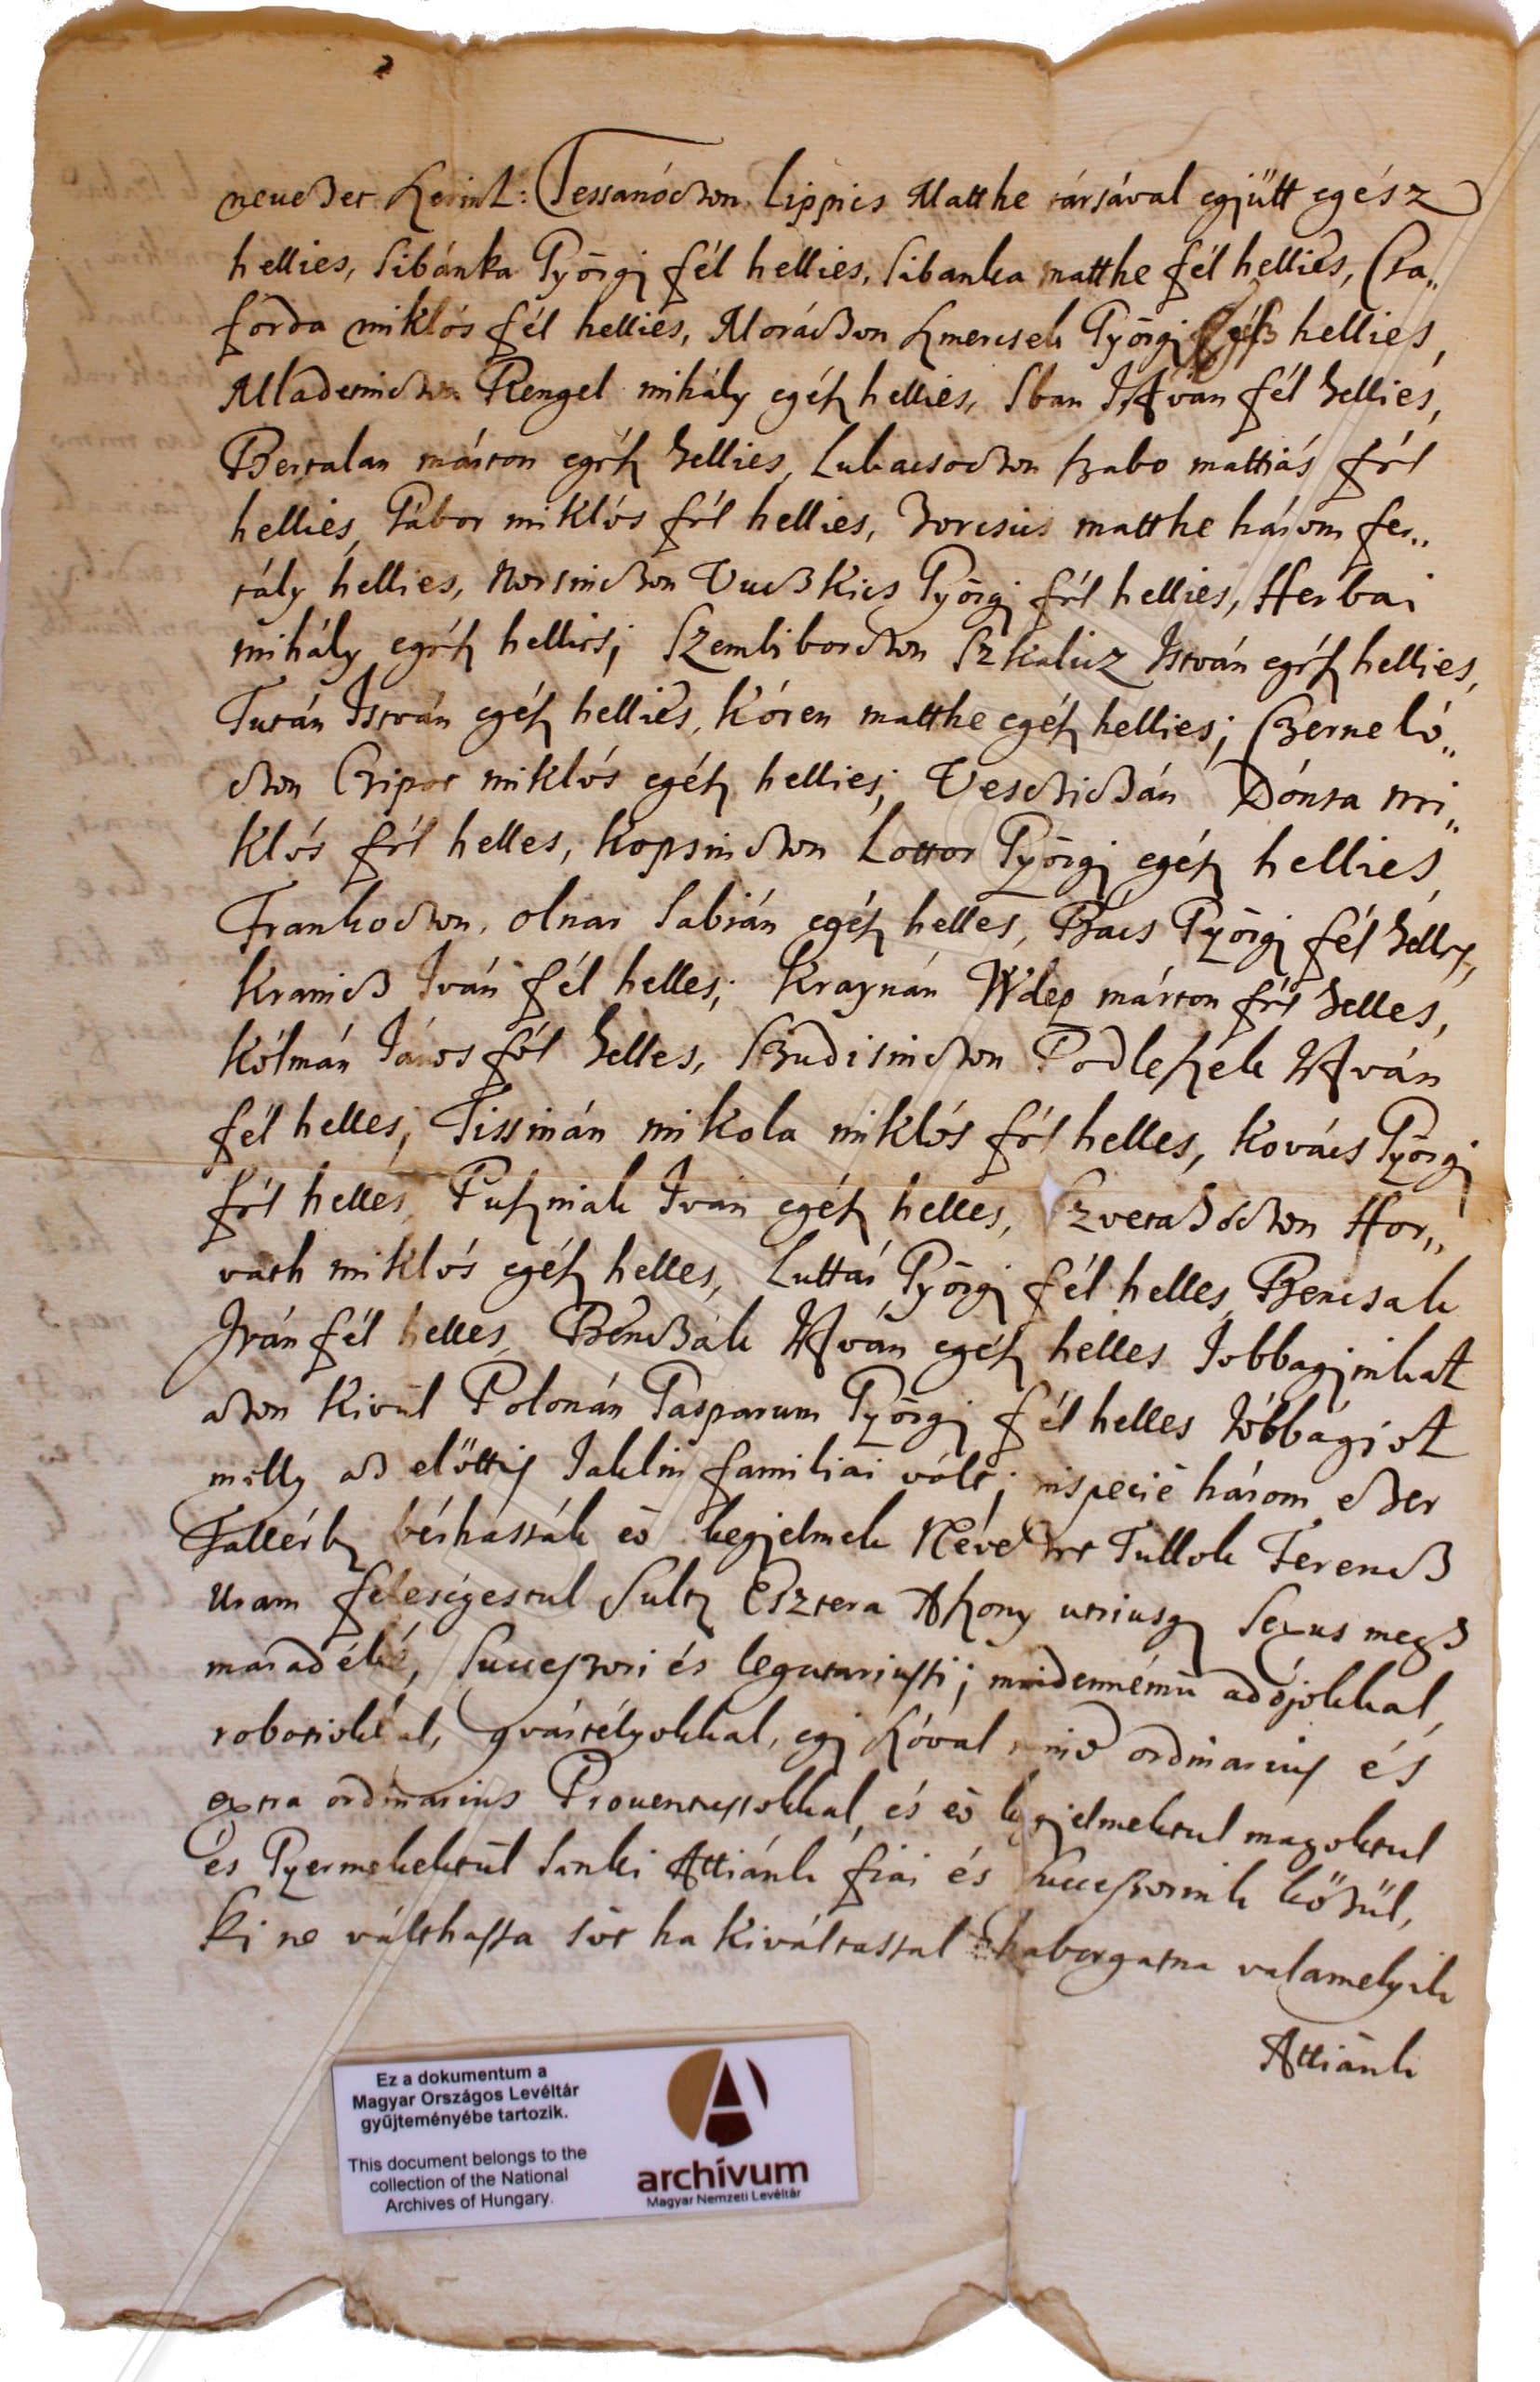 nevezet szerint: Tessanóczon Lippics Matthe társával együtt egész
hellies, Sibánka Györgj fél hellies, Sibanka matthe fél hellies, Csa„
forda miklós fél hellies, Moráczon Kmencsek Györgj hellies,
Mladetinczon Rengel mihály egész hellies, Sban István fél hellies,
Bertalan márton egész hellies, Lukacsoczon szabo mattiás fél
hellies, Gábor miklós fél hellies, Borcsics matthe három fer„
tály hellies, Norsinczon Vuczkics Györgj fél hellies, Herbai
mihály egész hellies; Szembiborczon Szkalicz István egész hellies,
Turán István egész hellies, Kóren matthe egész hellies; Czerneló„
czon Czipot miklós egész hellies; Vescziczán Dónta mi„
klós fél helles, Kopsinczon Lottor Györgj egész hellies,
Frankoczon, olnar Fabián egész helles, Bács Györgj fél helles,
Kranicz Iván fél helles; Kraynán Vdep márton fél helles,
Kólmán János fél helles, Budisinczon Podleszek István
fél helles; Tissinán mikola miklós fél helles, Kovács Györgj
fél helles, Puszniak Iván egész helles, Szvetahóczon Hor„
vath miklós egész helles, Luttár Györgj fél helles, Bencsak
Iván fél helles, Benczák István egész helles Jobbagjinkat
azon kivül Polonán Gasparum Györgj fél helles Jóbbágiot
melly az elöttis Jaklin familiai vólt; inspecié három ezer
Tallérb bérhassák eö kegjelmek Nevezet Tullok Ferencz
Uram feleségestul Sultz Esztera Aszony utriusq Sexus meg
maradéké, Successori és legatariussi; mindennémü adójokkal,
robotiokkal, qvártélyokkal, egj szóval mind ordinarius és
extra ordinarius Proventussokkal, és eö kegjelmektul magoktul
és Gyermekektül Senki Attiánk fiai és Successorink közül,
ki ne válthassa söt ha kiváltassal haborgatna valamelyik
Attiánk
Ez a dokumentum a
Magyar Országos Levéltár
gyűjteményébe tartozik.
This document belongs to the
collection of the National
Archives of Hungary.
archívum
Magyar Nemzeti Levéltár